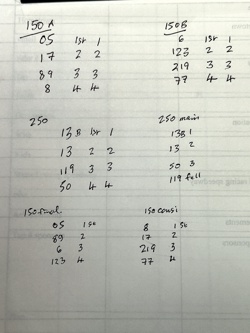 150 A
05 1st 1
17 2 2
89 3 3
8 4 4
150 B
6 1st 1
123 2 2
219 3 3
77 4 4
250
13B 1st 1
13 2 2
119 3 3
50 4 4
250 main
13B 1
13 2
50 3
119 fell
150 final
05 1 50
89 2
6 3
123 4
150 consi
8 1 50
17 2
219 3
77 4